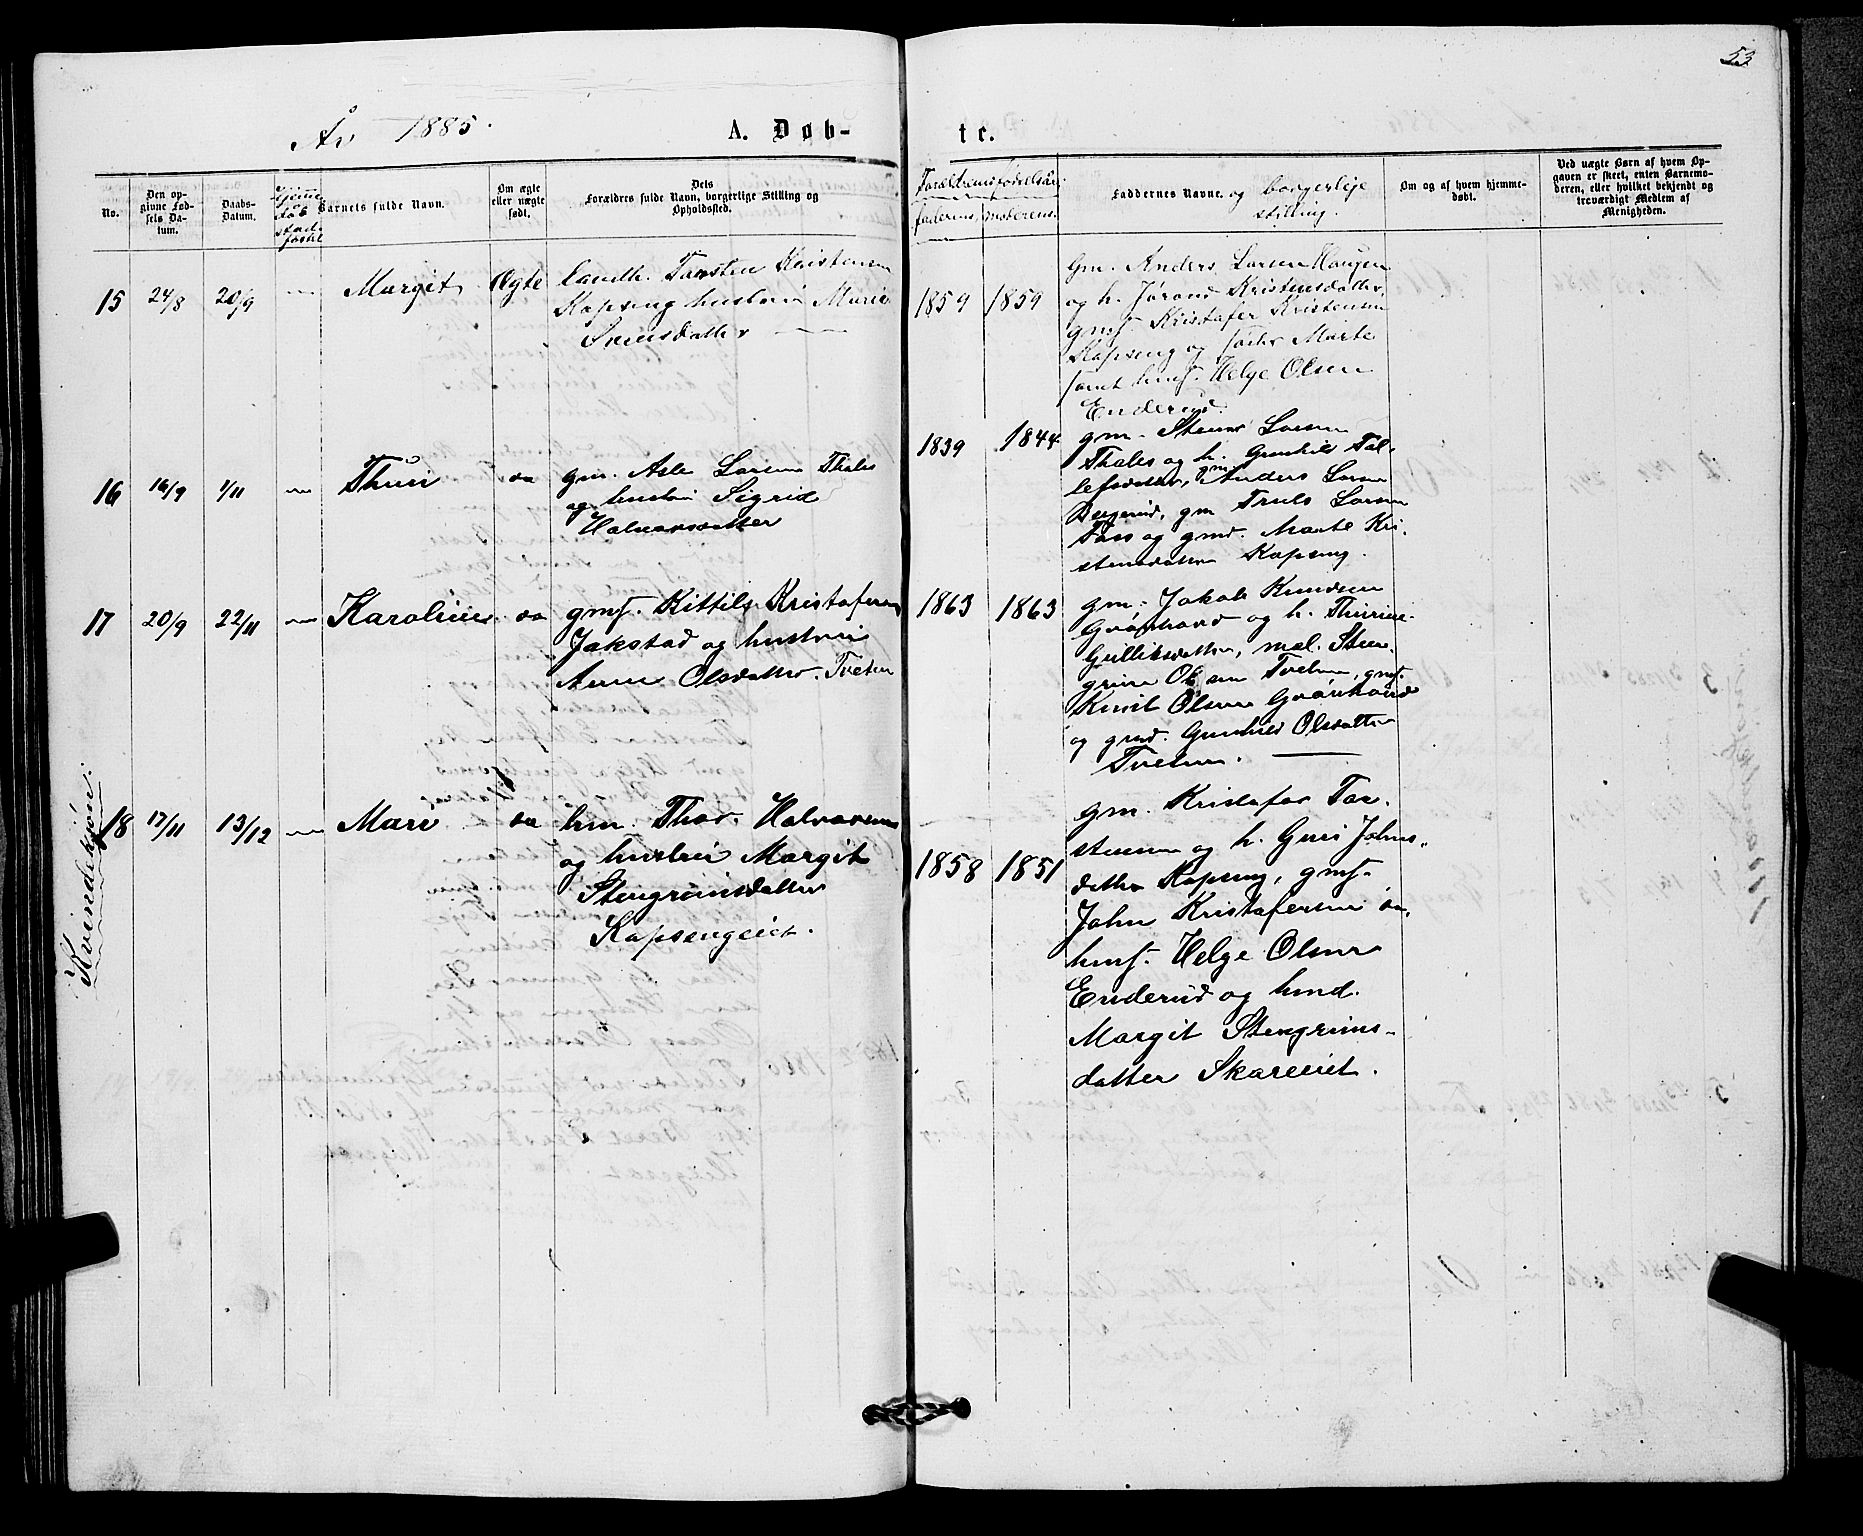 53
År 1885.
A. Døb-
te.
No.
Den op-
givne Fød-
sels Da-
tum.
Daabs-
Datum.
Barnets fulde Navn.
Om ægte
eller uægte
født.
Dets
Forældres fulde Navn, borgerlige Stilling og
Opholdssted.
Forældrenes fødselsår:
faderens, moderens.
Faddernes Navne. og borgerlige
stilling.
Om og af hvem hjemme-
døbt.
Ved uægte Børn af hvem Op-
gaven er skeet, enten Barnemo-
deren, eller hvilket bekjendt og
troværdigt Medlem af
Menigheden.
Kvindekjøn.
15 24/8 20/9 — Margit Ægte
Landh. Torsten Kristensen
Kapseng hustrui Marie
Svensdatter
1859 1859
gm. Anders Larsen Haugen
og h. Jørand Kristensdatter,
gmf. Kristafer Kristensen
Kapseng og søster Marte
samt hmf. Helge Olsen
Enderud.
16 16/9 1/11 — Thuri sa
gm. Asle Larsen Thales
og hustrui Sigrid
Halvorsdatter
1839 1844
gm. Stener Larsen
Thales og h. Gunhild Tol-
lefsdatter, gm Anders Larsen
Bergerud, gm Truls Larsen
Foss og gmd. Marte Kri-
stensdatter Kapseng.
17 20/9 22/11 — Karoline sa
gmf. Kittil Kristafersen
Jakstad og hustrui
Anne Olsdatter Tveten
1863 1863
gm. Jakob Knudsen
Grønhovd og h. Thurine
Gulliksdatter, mal. Sten-
grim Olsen Tveten, gmf.
Knut Olsen Grønhovd
og gmd. Gunhild Olsdatter
Tveten.
18 17/11 13/12 — Mari sa
hm. Thor Halvorsen
og hustrui Margit
Stengrimsdatter
Kapsengeiet.
1858 1851
gm. Kristafer Tor-
stensen og h. Guri Johns-
datter Kapseng, gmf.
John Kristafersen sa,
hmf. Helge Olsen
Enderud og hmd.
Margit Stengrims-
datter Skareeiet.